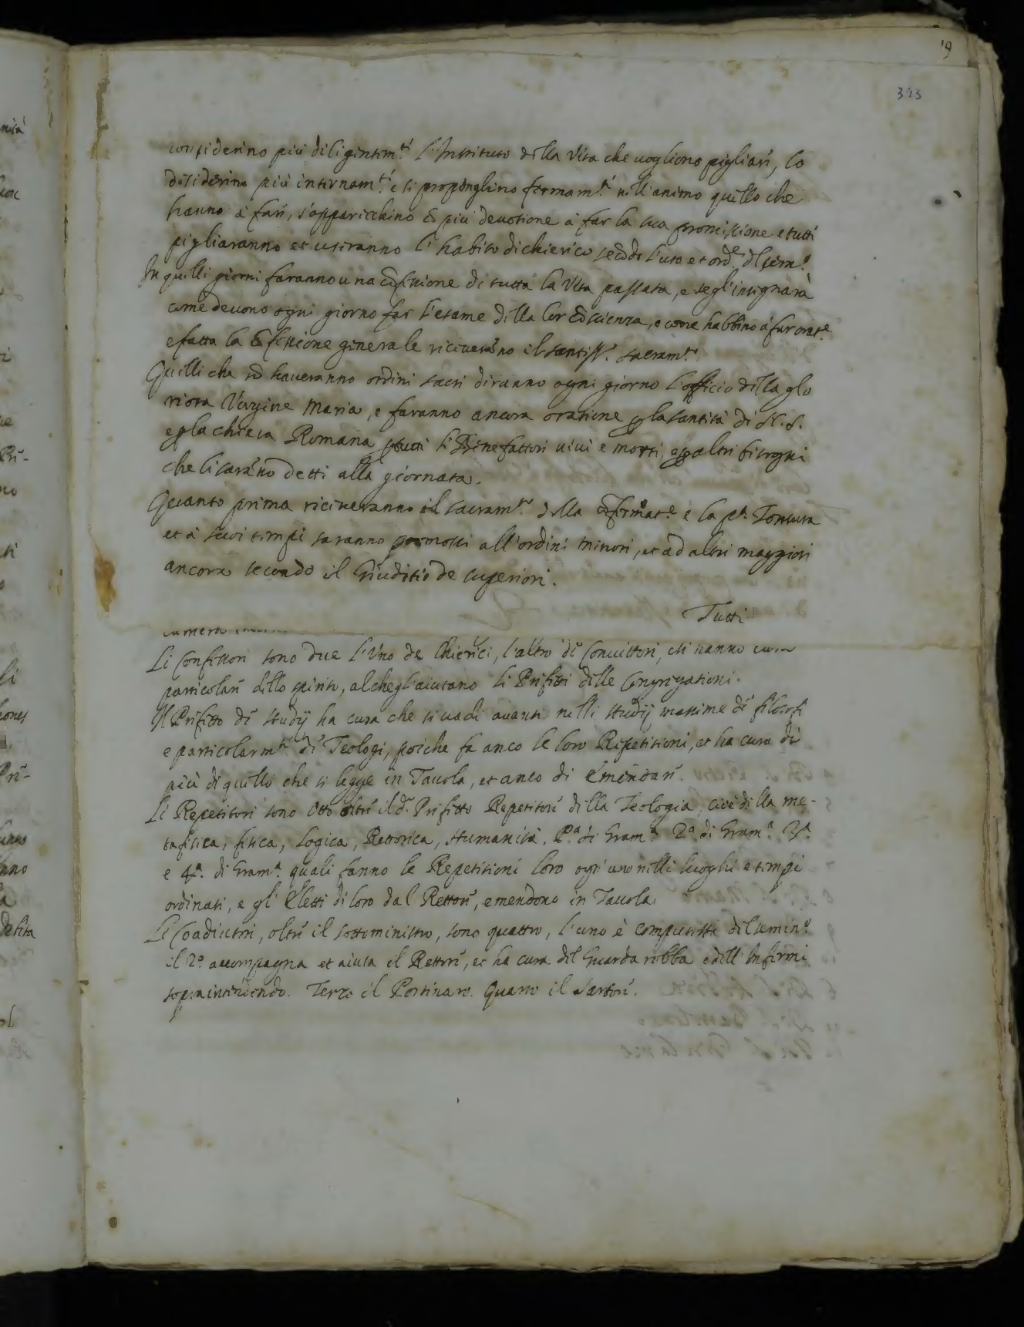 19
323
considerino più diligentem.te l'Instituto della Vita che vogliono pigliare, lo
desiderino più internam.te e si proponghino fermam.te nell'animo quello che
hanno à fare, s'apparecchino cõ più devotione à far la sua promissione e tutti
pigliaranno et usaranno l'habito di chierico secõdo l'uso et ord.e del sem.o
In quelli giorni faranno una cõfessione di tutta la Vita passata, e segl'insignarà
come devono ogni giorno far l'esame della lor cõscienza, e come habbino à far orat.e
e fatta la cõfessione generale riceveranno il santiss.o sacram.to
Quelli che nõ haveranno ordini sacri diranno ogni giorno l'officio della glo
riosa Vergine Maria, e faranno ancora oratione p la santità di N. S.
e p la chiesa Romana p tutti li Benefattori vivi e morti, e p altri bisogni
che li sarãno detti alla giornata.
Quanto prima riceveranno il sacram.to della cõfirmat.e e la p.a Tonsura
et à suoi tempi saranno promossi all'ordini minori, et ad altri maggiori
ancora secondo il Giuditio de superiori.
Tutti
Li Confessori sono due l'Uno de Chierici, l'altro di Convittori, et hanno cura
particolare dello spirito, al che gl'aiutano li Prefetti delle Congregationi.
Il Prefetto di studij ha cura che si vadi avanti nelli studij massime di filosofi
e particolarm.te di Teologi, poiche fa anco le loro Repetitioni, et ha cura di
più di quello che si legge in Tavola, et anco di emendare.
Li Repetitori sono Otto oltre il d.o Prefetto Repetitore della Teologia cioè della me-
tafisica, fisica, Logica, Rettorica, Humanità, P.a di Gram.a 2.a di Gram.a 3.a
e 4.a di Gram.a quali fanno le Repetitioni loro ogn'uno nelli luoghi e tempi
ordinati, e gl'Eletti di loro dal Rettore, emendono in Tavola
Li Coadiutori, oltre il sottoministro, sono quattro, l'uno è computista del semin.o
il 2.o accompagna et aiuta il Rettore, et ha cura del Guarda robba e dell'Infermi
sopraintendendo. Terzo il Portinaro. Quarto il Sartore.